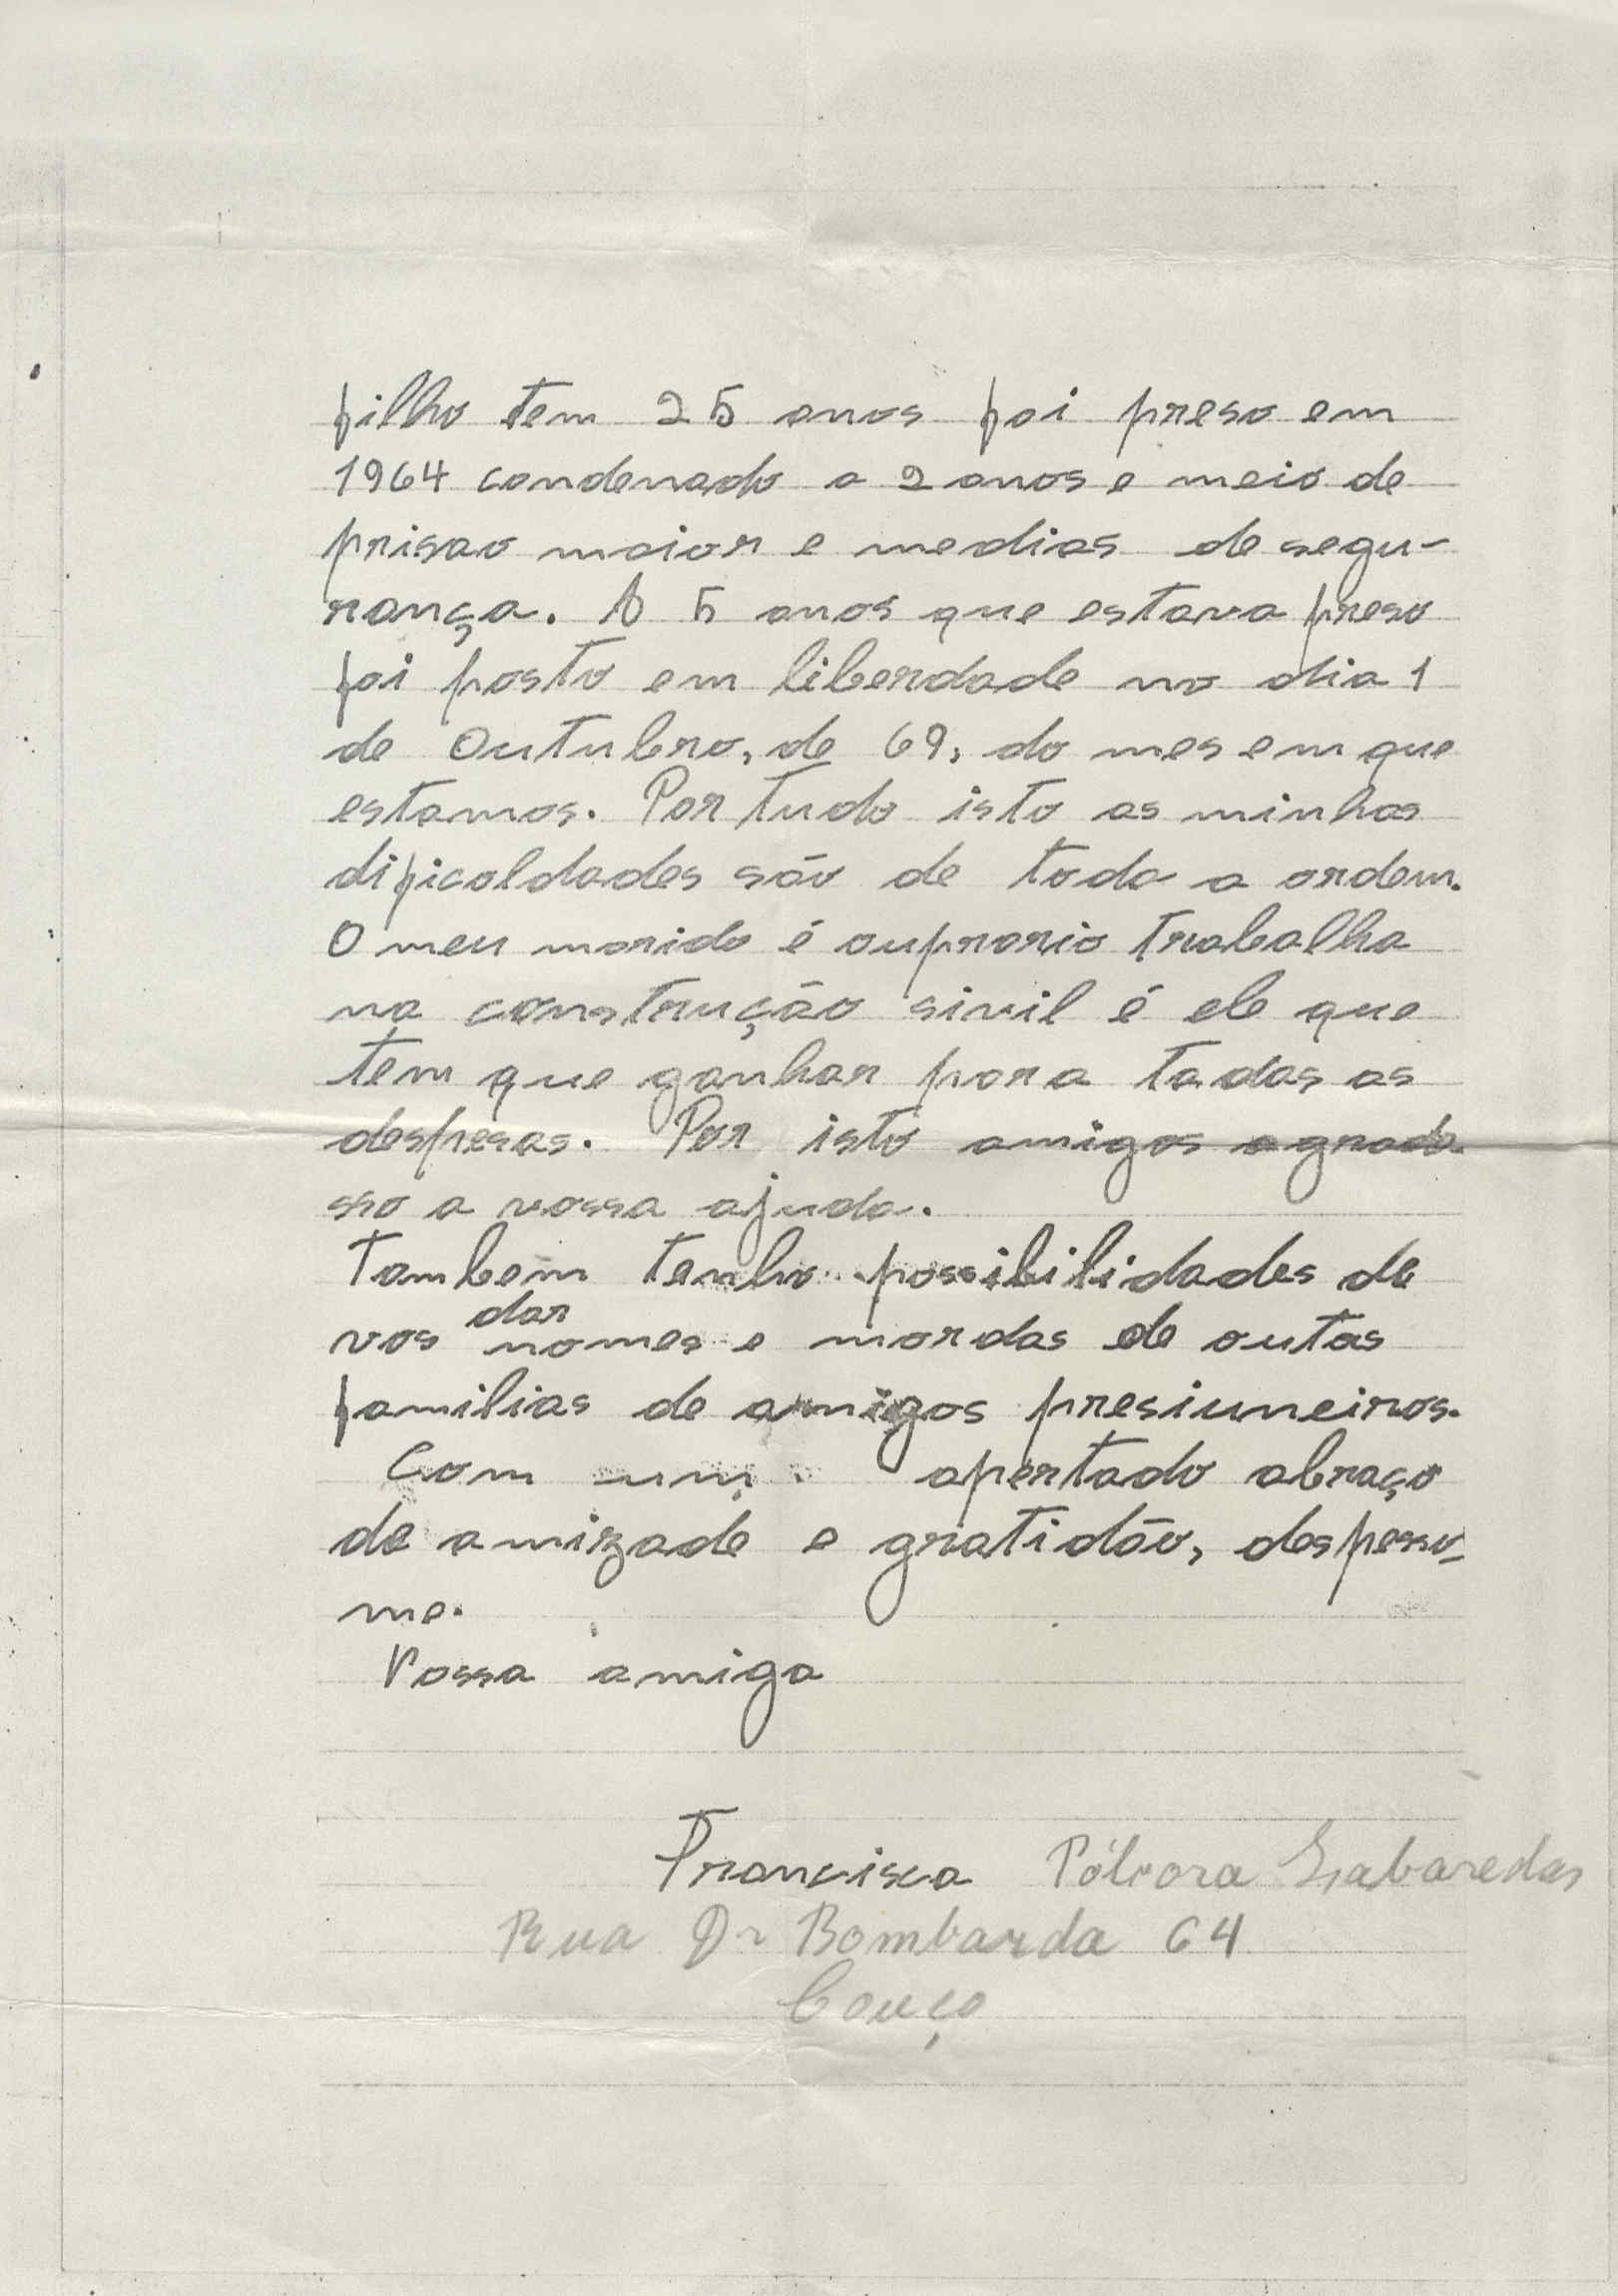 filho tem 25 anos foi preso em
1964 condenado a 2 anos e meio de
prisao maior e medias de segu-
rança. A 5 anos que estava preso
foi posto em liberdade no dia 1
de Outubro, de 69, do mes em que
estamos. Por tudo isto as minhas
dificoldades são de toda a ordem.
O meu marido é ouprario trabalha
na construção sivil é ele que
tem que ganhar para tadas as
despesas. Por isto amigos agrade
sso a vossa ajuda.
Tambem tenho possibilidades de
vos dar nomes e mordas de outas
familias de amigos presiuneiros.
Com um apertado abraço
de amizade e gratidão, despesso-
me.
Vossa amiga
Francisca Pólvora Labaredas
Rua Dr Bombarda 64
Couço